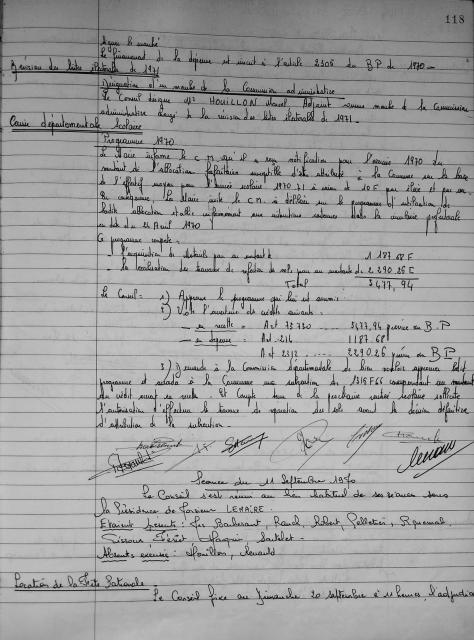 118
Signer le marché
Le financement de la dépense est inscrit à l'article 2305 du B P de 1970 -
Révision des listes électorales de 1971
Désignation d'un membre de la Commission administrative
Le Conseil désigne Mr HOUILLON Marcel, Adjoint comme membre de la Commission
administrative chargé de la révision des listes électorales de 1971 -
Caisse départementale scolaire
Programme 1970
Le Maire informe le C M qu'il a reçu notification pour l'année 1970 du
montant de l'allocation forfaitaire susceptible d'être attribuée à la Commune sur la base
de l'effectif moyen pour l'année scolaire 1970 71 à raison de 10 F par élève et par an
En conséquence, le Maire invite le C M à délibérer sur le programme d'utilisation de
ladite allocation établi conformément aux instructions contenues dans la circulaire préfectorale
en date du Avril 1970
Ce programme comporte :
- l'acquisition de matériels pour un montant de 1 187.68 F
- la réalisation des travaux de réfection de sols pour un montant de 2 290.26 F
Total 3477,94
Le Conseil = 1) Approuve le programme qui lui est soumis :
2) Vote l'ouverture des crédits suivants :
- en recette = Art 73 730 3477,94 prévue au B.P
- en dépense : Art. 214 1187.68
Art 2312 2290.26 prévu au BP
3) Demande à la Commission départementale de bien vouloir approuver ledit
programme et accorder à la Commune une subvention de correspondant au montant
du crédit Et compte tenu de la prochaine rentrée scolaire sollicite
l'autorisation d'effectuer les travaux de réparation des sols avant la décision définitive
d'attribution de la subvention -
Séance du 11 Septembre 1970
Le Conseil s'est réuni au lieu habituel de ses séances sous
la Présidence de Monsieur LEMAIRE.
Etaient présents : Robert, Pelletier,
Absents excusés : Houillon, Renauld
Location de la Fête Patronale
Le Conseil fixe au Dimanche 20 septembre à 11 heures, l'adjudica